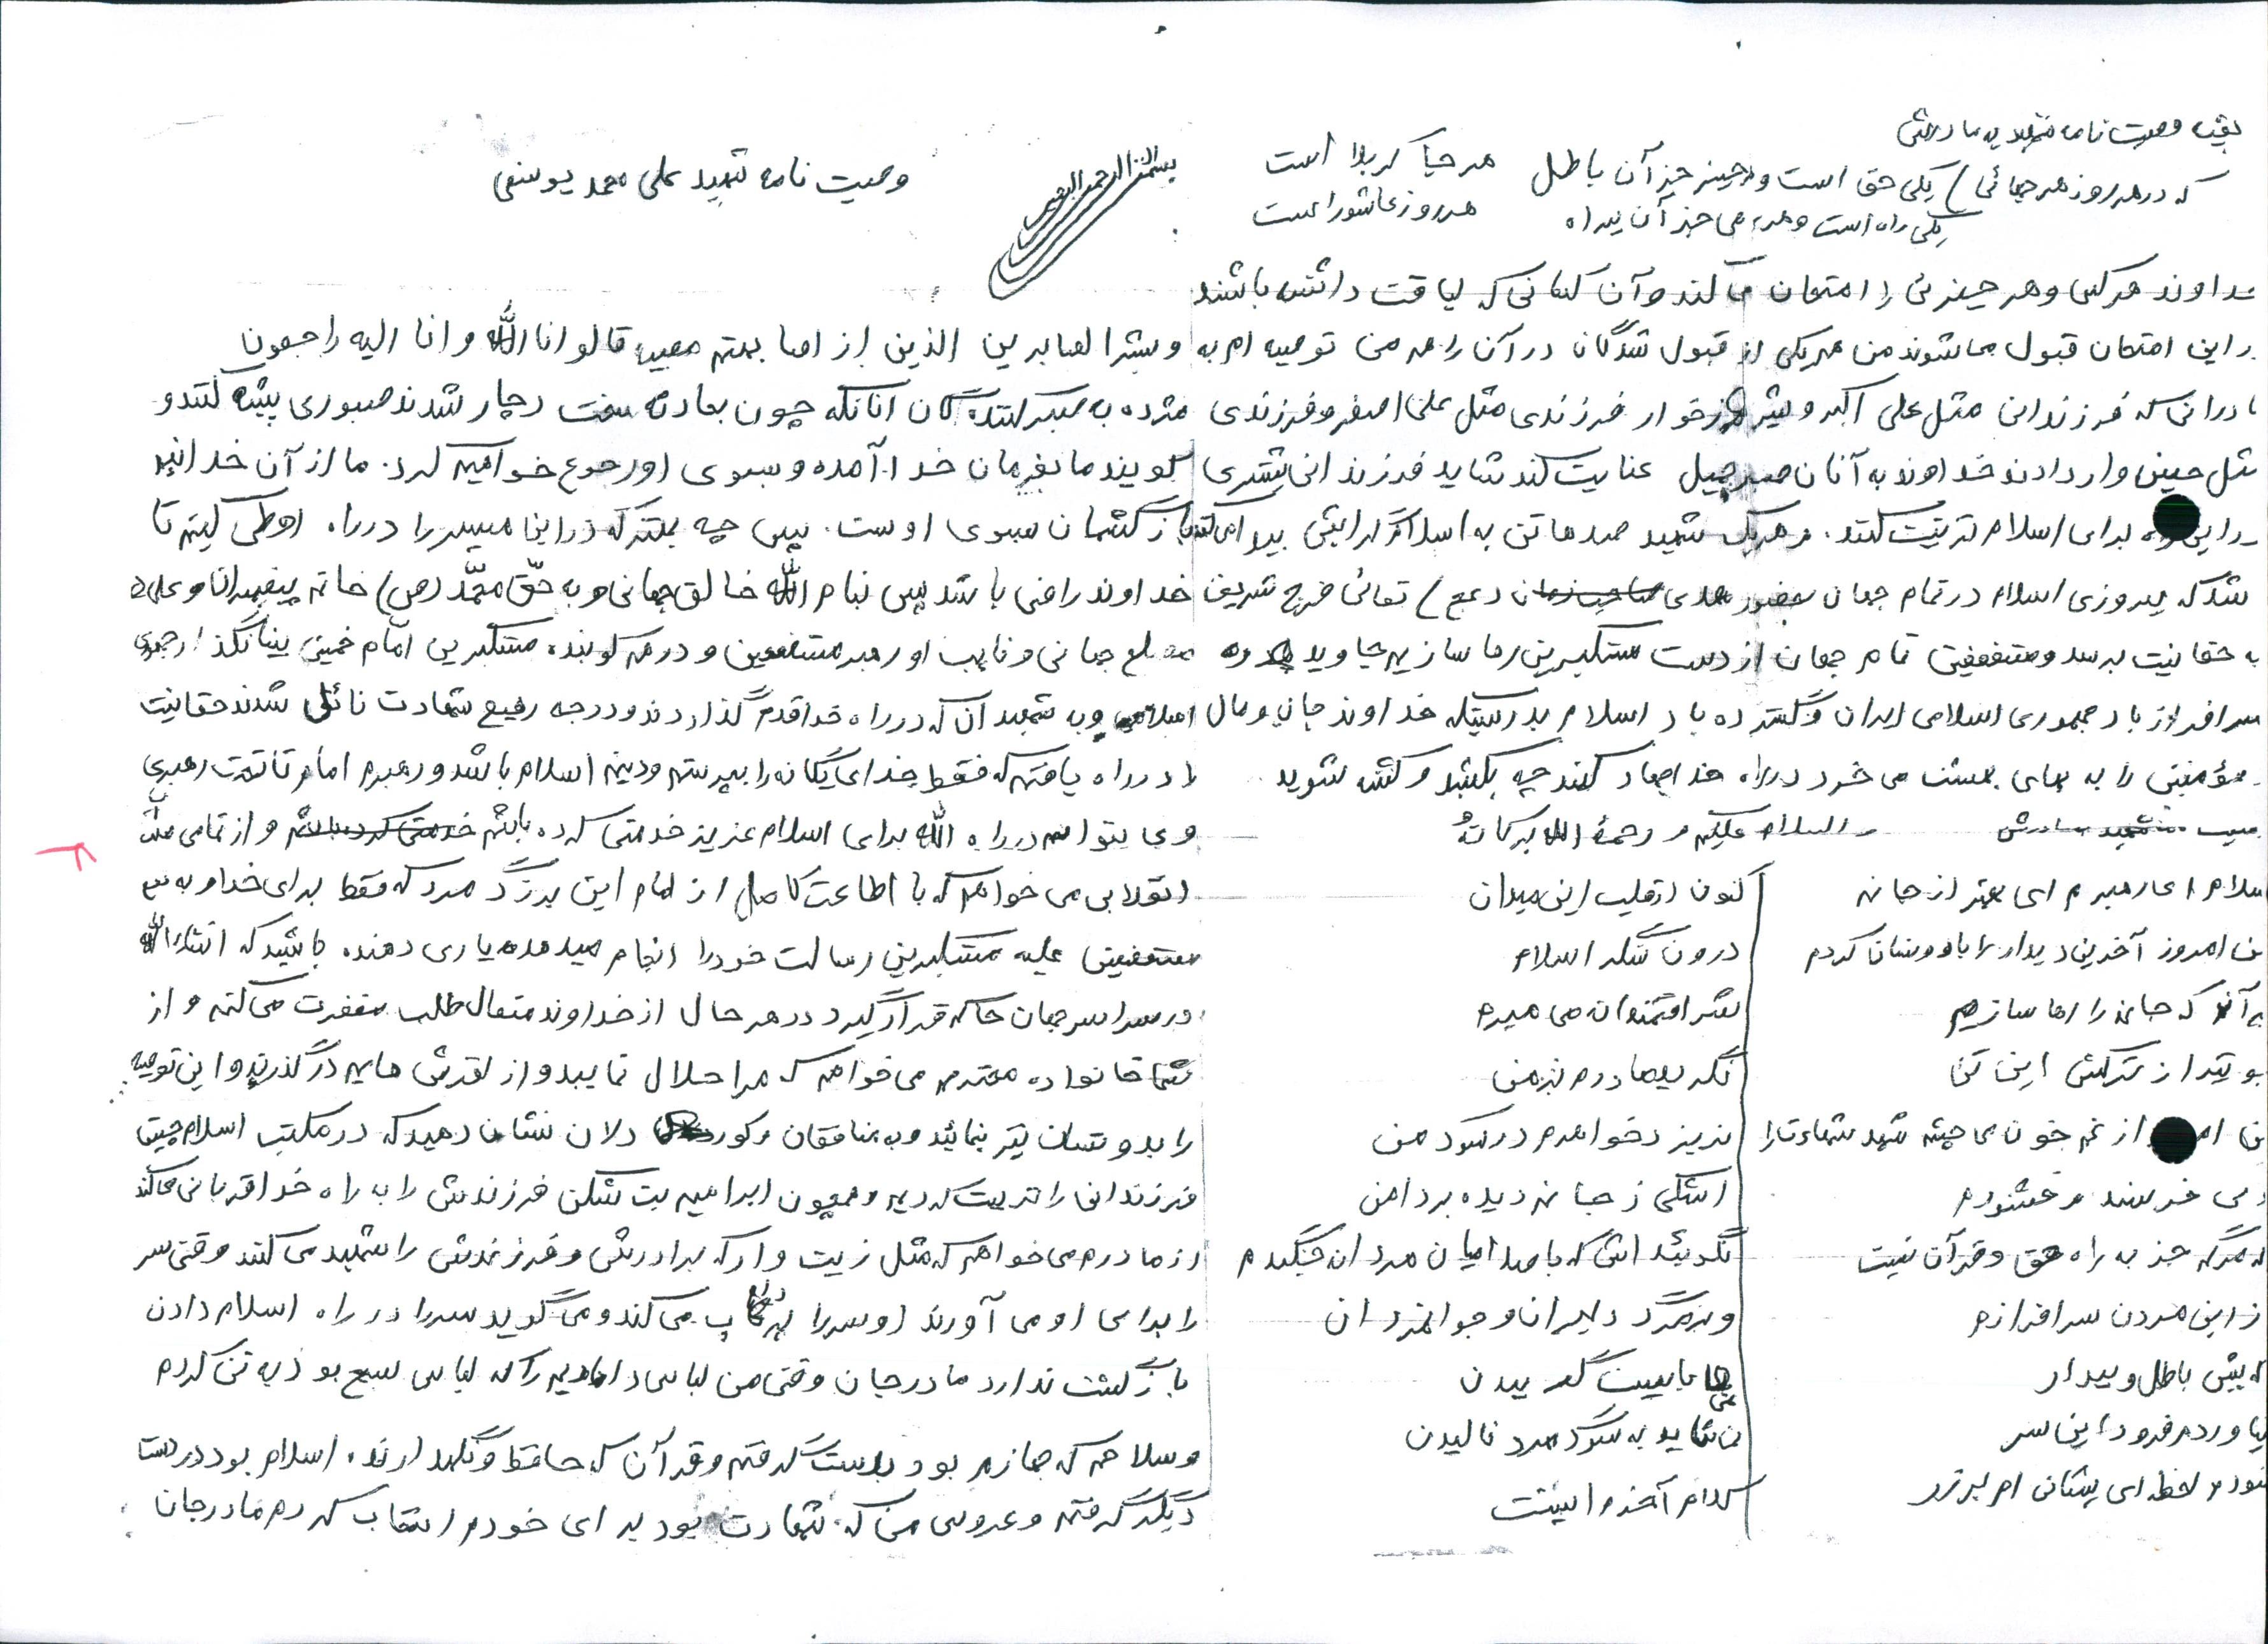 بقیه وصیت نامه شهید به مادرش
که در هر روز هر جائی) یکی حق است و هر چیز جز آن باطل هر جا کربلا است
یکی راه است و همه می جز آن بیراه هر روز عاشورا است
خداوند هر کس و هر چیزی را امتحان می کند و آن کسانی که لیاقت داشته باشند
در این امتحان قبول می شوند من هم یکی از قبول شدگان در آن راهم من توصیه ام به
مادرانی که فرزندانی مثل علی اکبر و شیر خوار فرزندی مثل علی اصغر و فرزندی
مثل حسین وار دادند خداوند به آنان صبر جمیل عنایت کند شاید فرزندانی بیشتری
در این راه برای اسلام تربیت کنند. و هر یک شهید صدها تن به اسلام گرایش پیدا می کنند
شد که پیروزی اسلام در تمام جهان بحضور مهدی صاحب زمان (عج) تعالی فرج شریف
به حقانیت برسد و مستضعفین تمام جهان از دست مستکبرین رها سازیم جاوید
سرافراز باد جمهوری اسلامی ایران و گسترده باد اسلام بدرستیکه خداوند جان و مال
مؤمنین را به بهای بهشت می خرد در راه خدا جهاد کنند چه بکشد و کشته شوید
والسلام علیکم و رحمة الله برکاته
سلام ای رهبرم ای بهتر از جانم
من امروز آخرین دیدار را با دوستان کردم
به آنکه جانم را رها سازم
بو تیر از ترکش این تن
من از غم خون می چشم شهد شهادت را
می خرسند و خشنودم
که مرگم جز به راه حق و قرآن نیست
از این مردن سرافرازم
که پیش باطل و بیداد
نیاوردم فرود این سر
لحظه ای پیشانی ام بر
اکنون از قلب این میدان
درون سنگر اسلام
شرافتمندانه می میرم
نگرید مادرم بر من
نریزد خواهرم در سوگ من
اشکی ز جانم دیده بر دامن
نگوئید اشک با صد ایمان مردانه جنگیدم
و بر مرگ دلیران و جوانمردان
نبایست گرییدن
نشاید به سوگ مرد نالیدن
کلام آخرم اینست
بسم الله الرحمن الرحیم
وصیت نامه شهید علی محمد یوسفی
و بشر الصابرین الذین اذ اصابتهم مصیبه قالو انا الله و انا الیه راجعون
مژده به صبر کنندگان آنانکه چون بحادثه سخت دچار شدند صبوری پیشه کنند و
گویند ما بفرمان خدا آمده و بسوی او رجوع خواهیم کرد. ما از آن خدائیم
بازگشتمان بسوی اوست. پس چه بهتر که در این مسیر را در راه او طی کنیم تا
خداوند راضی باشد پس بنام الله خالق جهانی و به حق محمد (ص) خاتم پیغمبران و علی
مصلح جهانی و نایب او رهبر مستضعفین و درهم کوبنده مستکبرین امام خمینی بنیانگذار جمهوری
اسلامی و به شهیدان که در راه خدا قدم گذاردند و درجه رفیع شهادت نائل شدند حقانیت
را در راه یافتم که فقط خدای یگانه را بپرستم و دینم اسلام باشد و رهبرم امام تا تحت رهبری
وی بتوانم در راه الله برای اسلام عزیز خدمتی کرده باشم خدمتی کرده باشم و از تمامی ملت
انقلابی می خواهم که با اطاعت کامل از امام این بزرگ مرد که فقط برای خدا و به نفع
مستضعفین علیه مستکبرین رسالت خود را انجام میدهد یاری دهنده باشید که انشاءالله
در سراسر جهان حاکم قرار گیرد در هر حال از خداوند متعال طلب مغفرت می کنم و از
شما خانواده محترم می خواهم که مرا حلال نمایید و از لغزش هایم درگذرید و این توصیه
را به دوستان نیز بنمائید و به منافقان و کور دلان نشان دهید که در مکتب اسلام چنین
فرزندانی را تربیت کردیم و همچون ابراهیم بت شکن فرزندش را به راه خدا قربانی می کند
از مادرم می خواهم که مثل زینب وار که برادرش و فرزندش را شهید می کنند وقتی سر
را برای او می آورند او سر را پرتاب می کند و می گوید سر را در راه اسلام دادن
بازگشت ندارد مادر جان وقتی من لباس دامادیم را که لباس بسیج بود به تن کردم
و سلاحم که جهازم بود بدست گرفتم و قرآن که حافظ و نگهدارنده اسلام بود در دست
دیگر گرفتم و عروس من که شهادت بود برای خودم انتخاب کردم مادر جان